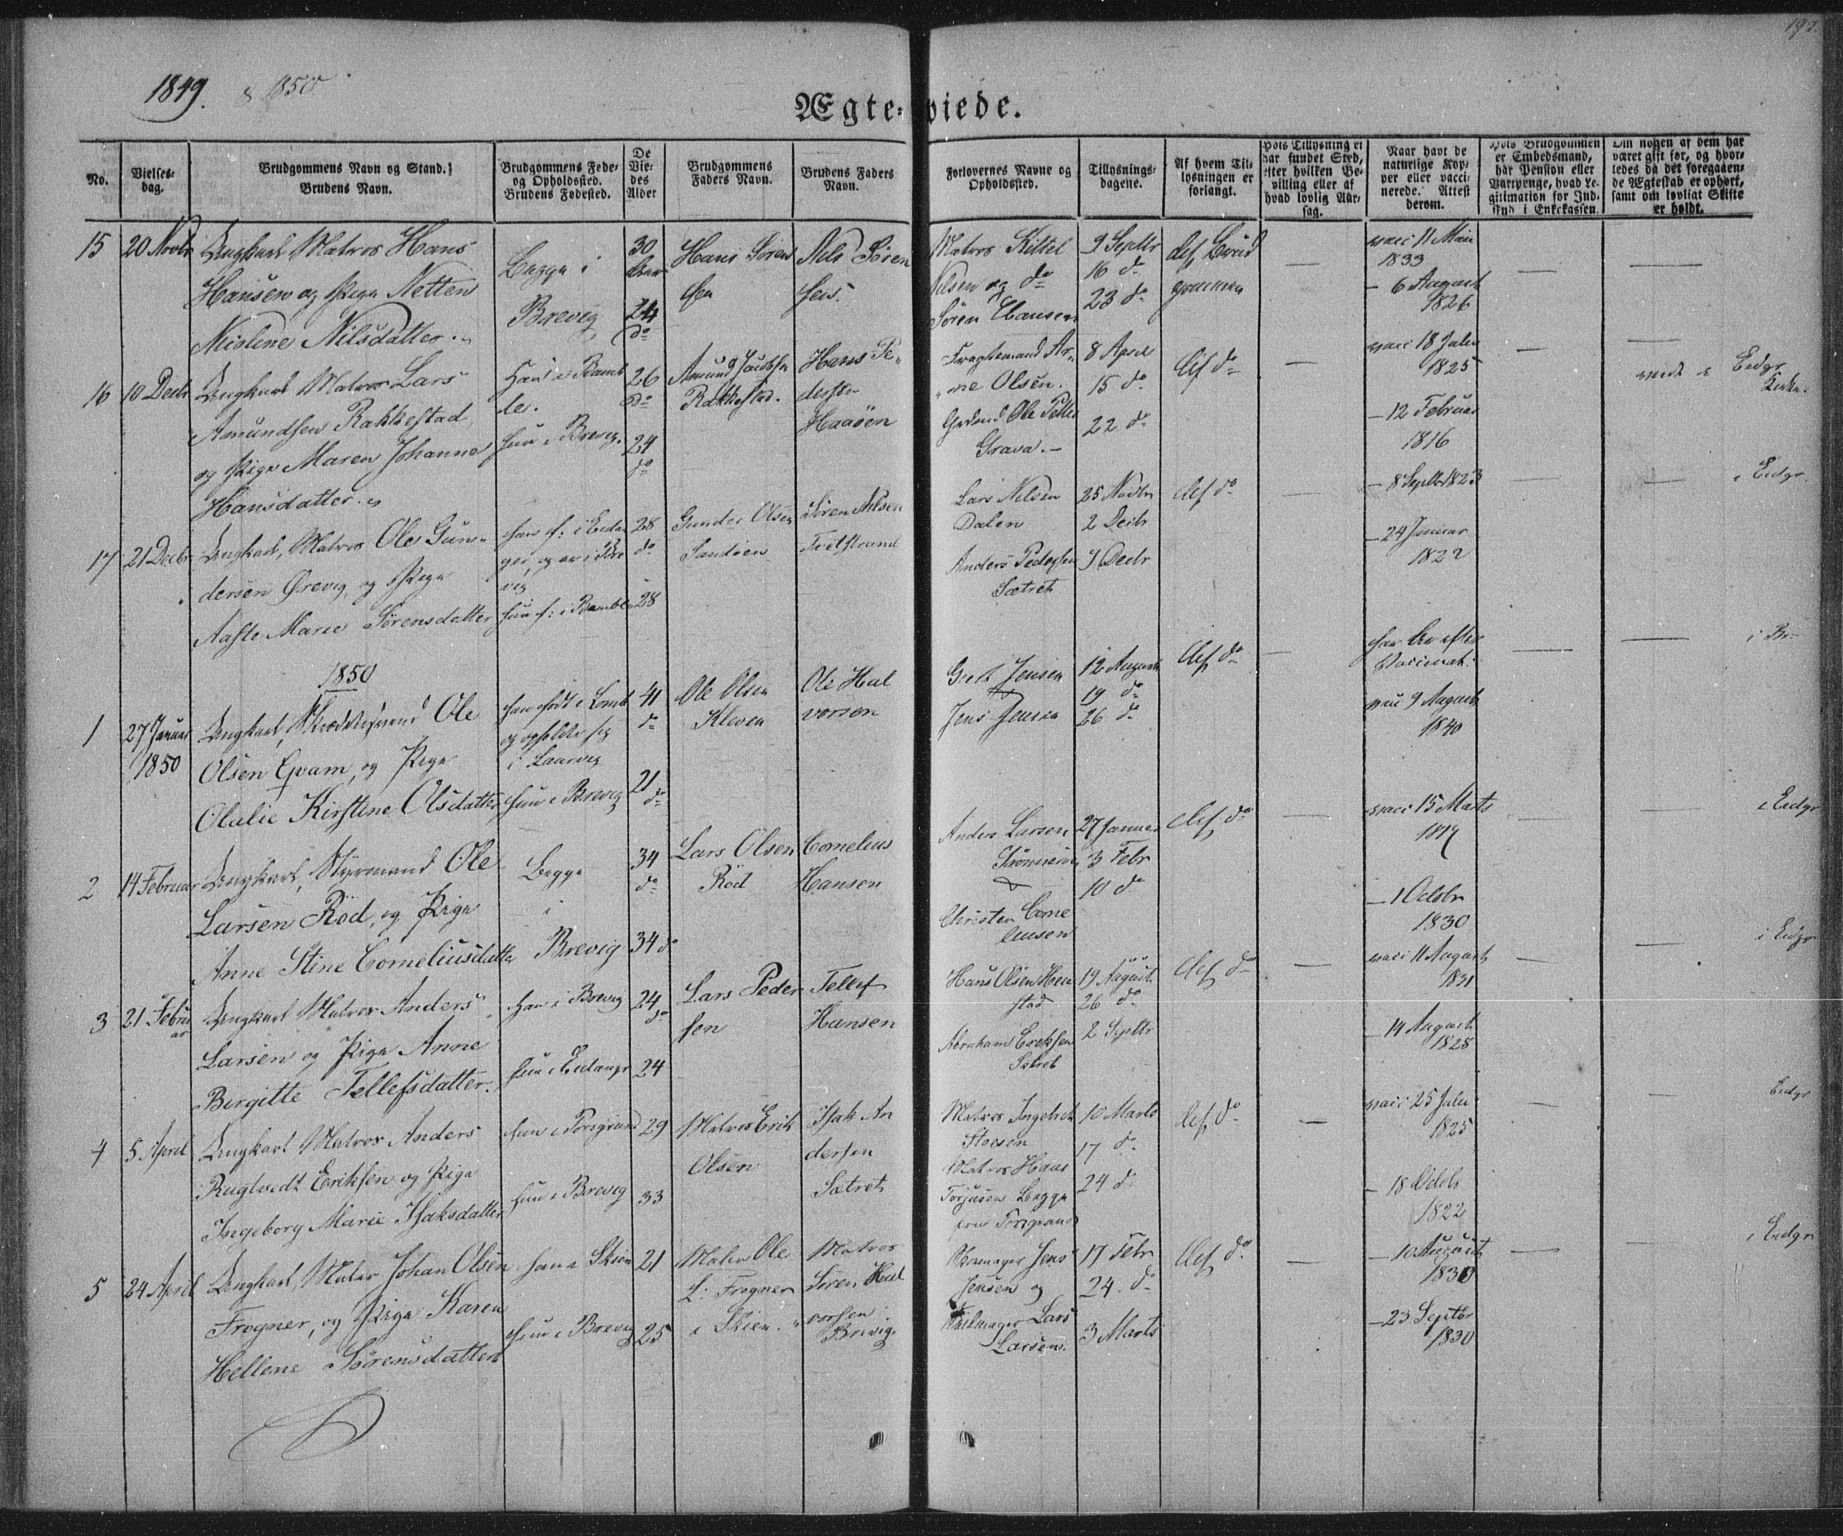 197.
1849. & 1850.
Ægte-viede.
No.
Vielses-
dag.
Brudgommens Navn og Stand.
Brudens Navn.
Brudgommens Føde-
og Opholdssted.
Brudens Fødested.
De
Vie-
des
Alder
Brudgommens
Faders Navn.
Brudens Faders
Navn.
Forlovernes Navne og
Opholdssted.
Tillysnings-
dagene.
Af hvem Til-
lysningen er
forlangt.
Hvis Tillysning ei
har fundet Sted,
efter hvilken Be-
villing eller af
hvad lovlig Aar-
sag.
Naar havt de
naturlige Kop-
per eller vacci-
nerede. Attest
derom.
Hvis Brudgommen
er Embedsmand,
har Pension eller
Vartpenge, hvad Le-
gitimation for Ind-
skud i Enkekassen.
Om nogen af dem har
været gift før, og hvor-
ledes da det foregaaen-
de Ægteskab er ophørt,
samt om lovligt Skifte
er holdt.
15
20 Novbr
Ungkarl Matros Hans
Hansen og Pige Netten
Nicoline Nilsdatter
Begge i
Brevig
30
Aar
24
do
Hans Sören
sen
Nils Sören
sen
Matros Kittel
Nilsen og do
Sören Hansen
9 Septbr
16 do
23 do
vacc 11 Mai
1833
— 6 August
1826
16
10 Decbr
Ungkarl Matros Lars
Amundsen Rakkestad
og Pige Maren Johanne
Hansdatter
Han i Bamb
le.
hun i Brevig.
26
do
24
do
Amund Jacobsen
Rakkestad.
Hans Pe-
dersen
Haaöen
Fragtemand Ar-
ne Olsen.
Ole Petter
Grava.
8 April
15 do
22 do
Uef do
vacc 18 Julii
1825
— 12 Februar
1816
viede i Eidgr
Kirke.
17
21 Decbr
Ungkarl, Matros Ole Gun-
dersen Örevig, og Pige
Aaste Marie Sörensdatter
han f: i Eidan
ger, og er i Bre
vig
hun f: i Bamble
28
do
28
Gunder Olsen
Sandöen
Sören Nilsen
Lars Nilsen
Dalen
Anders Pedersen
Sætret
25 Novbr
2 Decbr
9 Decbr
Uef do
— 8 Septb 1823
— 24 Januar
1822
i Eidgr.
1850
1
27 Januar
1850
Ungkarl, Skrædersvend Ole
Olsen Qvam, og Pige
Olalie Kirstine Olsdatter
han født i Lomb
og opholder sig
i Laurvig
hun i Brevig
41
do
21
do
Ole Olsen
Kleven
Ole Hal
vorsen
Jensen
Jens Jensen
12 August
19 do
26 do
Uef do
vacc 9 August
1840
i Br
2
14 Februar
Ungkarl, Styrmand Ole
Larsen Röd, og Pige
Anne Stine Corneliusdatter
Begge
i
Brevig
34
do
34 do
Lars Olsen
Röd
Cornelius
Hansen
Anders Larsen
Christen Corne
liusen
27 Januar
3 Febr
10 do
Uef do
vacc 15 Marts
1819
— 1 Octobr
1830
i Eidgr
3
21 Febru
ar
Ungkarl Matros Anders
Larsen og Pige Anne
Birgitte Tellefsdatter.
Han i Brevig
hun i Eidangr
24
do
24
Lars Peder
sen
Tellef
Hansen
Hans Olsen Hen
stad
Abraham Eriksen
Sætret
19 August
26 do
2 Septbr
Uef do
vacc 11 August
1831
— 14 August
1828
i Eidgr
4
5 April
Ungkarl Matros Anders
Rugtvedt Eriksen og Pige
Ingeborg Marie Isaksdatter
han i Porsgrund
hun i Brevig
29
33
Matros Erik
Olsen
Isak An
dersen
Sætret
Matros Ingebret
Stoesen
Matros Hans
Torjusen Begge
fra Porsgrund
10 Marts
17 do
24 do
Uef do
vacc 25 Julii
1825
— 18 Octob
1822
Eidgr
5
24 April
Ungkarl, Matros Johan Olsen
Frogner, og Pige Karen
Hellene Sörensdatter
han i Skien
hun i Brevig
21
25
Matros Ole
L: Frogner
i Skien.
Matros
Sören Hal
vorsen
Brevig.
Jens
Jensen og
Seilmager Lars
Larsen.
17 Febr
24 do
3 Marts
Uef do
— 10 August
1830
— 23 Septbr
1830
i Eidgr